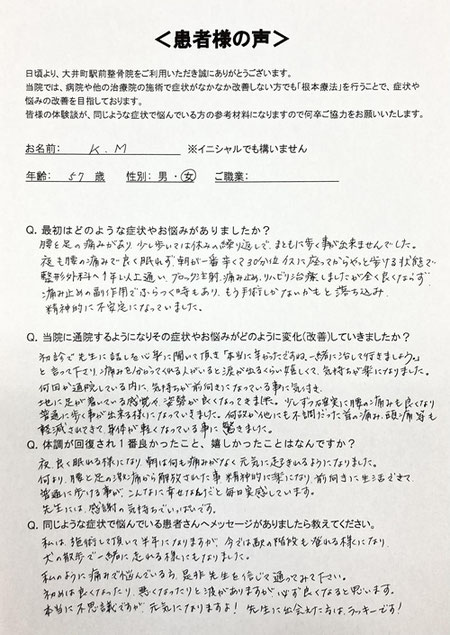 ＜患者様の声＞
日頃より、大井町駅前整骨院をご利用いただき誠にありがとうございます。
当院では、病院や他の治療院の施術で症状がなかなか改善しない方でも「根本療法」を行うことで、症状や
悩みの改善を目指しております。
皆様の体験談が、同じような症状で悩んでいる方の参考材料になりますので何卒ご協力をお願いいたします。
お名前: K.M ※イニシャルでも構いません
年齢: 57 歳 性別: 男・女 ご職業:
Q. 最初はどのような症状やお悩みがありましたか？
腰と足の痛みがあり、少し歩いては休みの繰り返しで、まともに歩く事が出来ませんでした。
夜も腰の痛みで良く眠れず、朝が一番辛くて30分位イスに座ってからやっと歩ける状態で
整形外科へ1年以上通い、ブロック注射、痛み止め、リハビリ治療しましたが全く良くならず
痛み止めの副作用でふらつく時もあり、もう手術しかないかもと落ち込み
精神的に不安定になっていました。
Q. 当院に通院するようになりその症状やお悩みがどのように変化(改善)していきましたか？
初診で先生に話しを心身に聞いて頂き「本当に辛かったですね、一緒に治して行きましょう。」
と言って下さり、痛みを分かってくれる人がいると涙が出るくらい嬉しくて、気持ちが楽になりました。
何回か通院している内に、気持ちが前向きになっている事に気付き
地に足が着いている感覚や姿勢が良くなってきました。少しずつ確実に腰の痛みも良くなり
普通に歩く事が出来る様になっていきました。何故か他にも不調だった首の痛み、頭痛等も
軽減されてきて身体が軽くなっている事に驚きました。
Q. 体調が回復され1番良かったこと、嬉しかったことはなんですか？
夜、良く眠れる様になり、朝は何も痛みがなく元気に起きれるようになりました。
何より、腰と足の激痛から解放された事、精神的に楽になり、前向きに生活できて
普通に歩ける事が、こんなに幸せなんだと毎日実感しています。
先生には、感謝の気持ちでいっぱいです。
Q. 同じような症状で悩んでいる患者さんへメッセージがありましたら教えてください。
私は、施術して頂いて半年になりますが、今では駅の階段も登れる様になり
犬の散歩で一緒に走れる様にもなりました。
私のように痛みで悩んでいる方、是非先生を信じて通ってみて下さい。
初めは良くなったり、悪くなったりと波がありますが必ず良くなると思います。
本当に不思議ですが、元気になりますよ！先生に出会えた方は、ラッキーです！